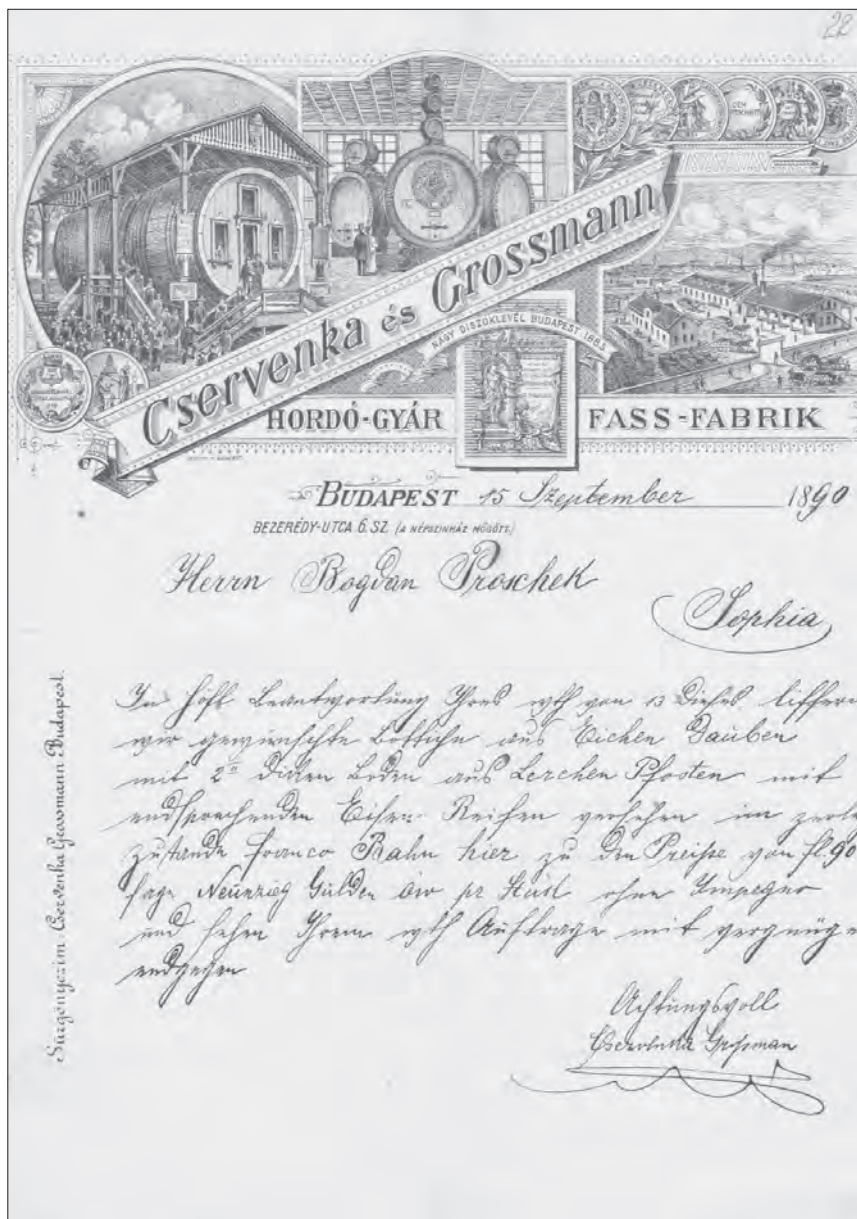 22
Cservenka és Grossmann
NAGY DISZOKLEVÉL BUDAPEST 1885.
HORDÓ-GYÁR FASS-FABRIK
BUDAPEST 15 Szeptember 1890
BEZERÉDY-UTCA 6. SZ. (A NÉPSZINHÁZ MÖGÖTT.)
Herrn Bogdan Proschek
Sophia
In höfl Beantwortung Ihres wth von 13 Dieses liffern
wir gewünschte Bottiche aus Eichen Dauben
mit 2" dicken Boden aus Lerchen Pfosten mit
endsprechenden Eisen-Reifen versehen im
zustande franco Bahn hier zu den Preise von fl. 90
sage Neunzig Gulden öw pr Stück ohne
und sehen Ihrem wth Auftrage mit vergnüge
endgegen
Achtungsvoll
Cservenka Großman
Sürgönyczim: Cservenka Grossmann Budapest.